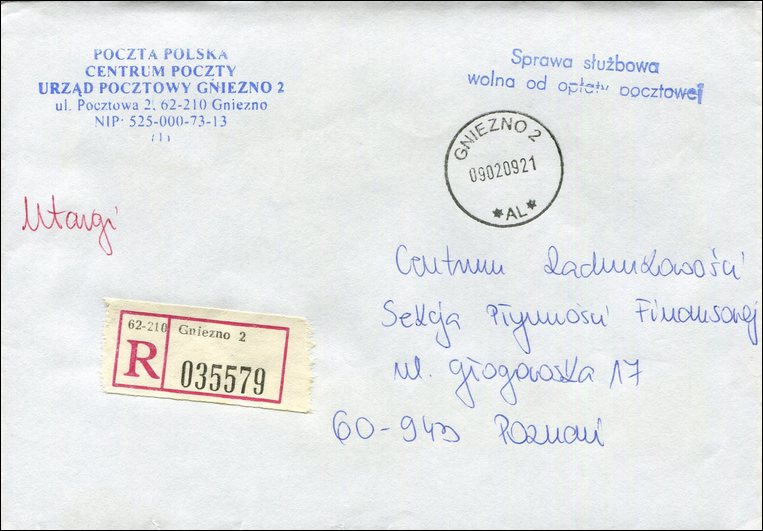 POCZTA POLSKA
CENTRUM POCZTY
URZĄD POCZTOWY GNIEZNO 2
ul. Pocztowa 2, 62-210 Gniezno
NIP: 525-000-73-13
(1)
Sprawa służbowa
wolna od opłaty pocztowej
GNIEZNO 2
09020921
*AL*
Utargi
Centrum Rachunkowości
Sekcja Płynności Finansowej
ul. Głogowska 17
60-943 Poznań
62-210 Gniezno 2
R 035579